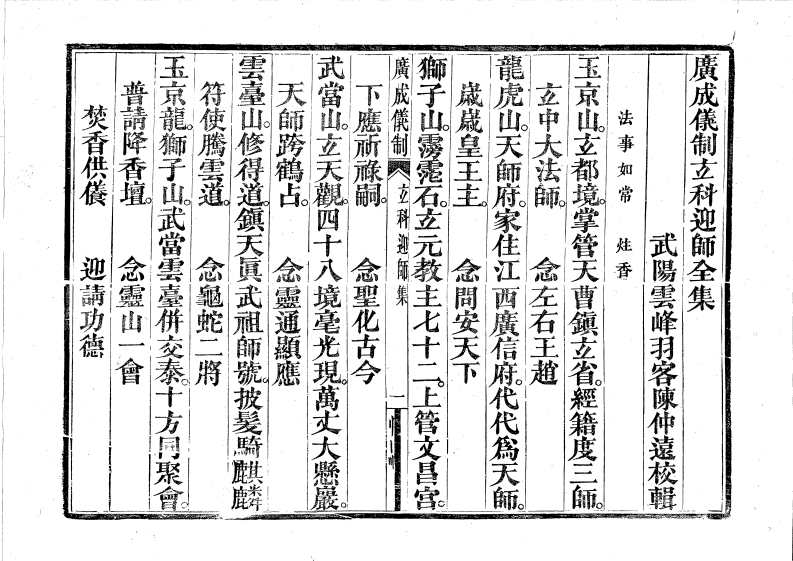 廣成儀制立科迎師全集
武陽雲峰羽客陳仲遠校輯
法事如常　炷香
玉京山。立都境。掌管天曹鎮立省。經籍度三師。
立中大法師。　念左右王趙
龍虎山。天師府。家住江西廣信府。代代爲天師。
歲歲皇王主。　念問安天下
獅子山。霶霔石。立元教主七十二。上管文昌宮。
廣成儀制　立科迎師集　一
下應祈祿嗣。　念聖化古今
武當山。立天觀。四十八境毫光現。萬丈大懸巖。
天師跨鶴占。　念靈通顯應
雲臺山。修得道。鎮天眞武祖師號。披髮騎麒麟
符使騰雲道。　念龜蛇二將
玉京龍。獅子山。武當雲臺併交泰。十方同聚會。
普請降香壇。　念靈山一會
焚香供儀　迎請功德